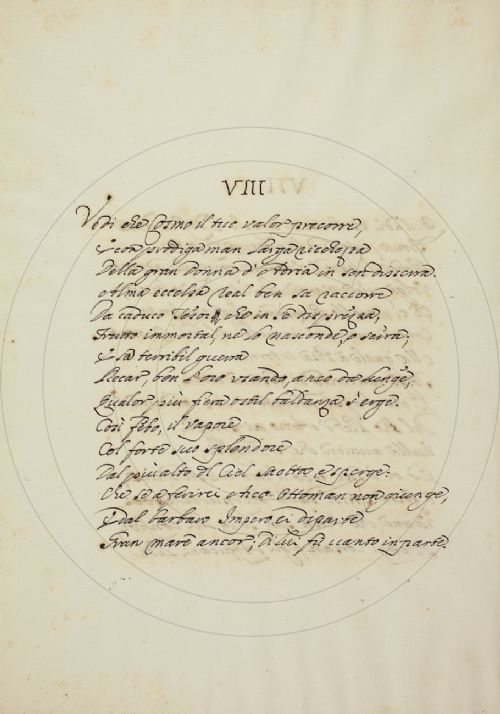 VIII
Vedi che Cosmo il tuo valor precorre,
E con prodiga man larga ricchezza
Della gran Donna d'Adria in sen disserra.
Alma eccelsa Real ben sa raccorre
Da caduco Tesor, che in se disprezza,
Frutto immortal, ne lo nasconde, o serra;
E sà terribil guerra
Recar, ben l'oro usando, anco da lunge,
Qualor più fiera ostil baldanza s'erge.
Così Febo, il vapore
Col forte suo splendore
Dal più alto del Ciel saetta, e sperge:
Che se a ferirci Ottoman non giunge,
E dal barbaro Impero, ci diparte
Gran mare ancor; di lui fu vanto in parte.